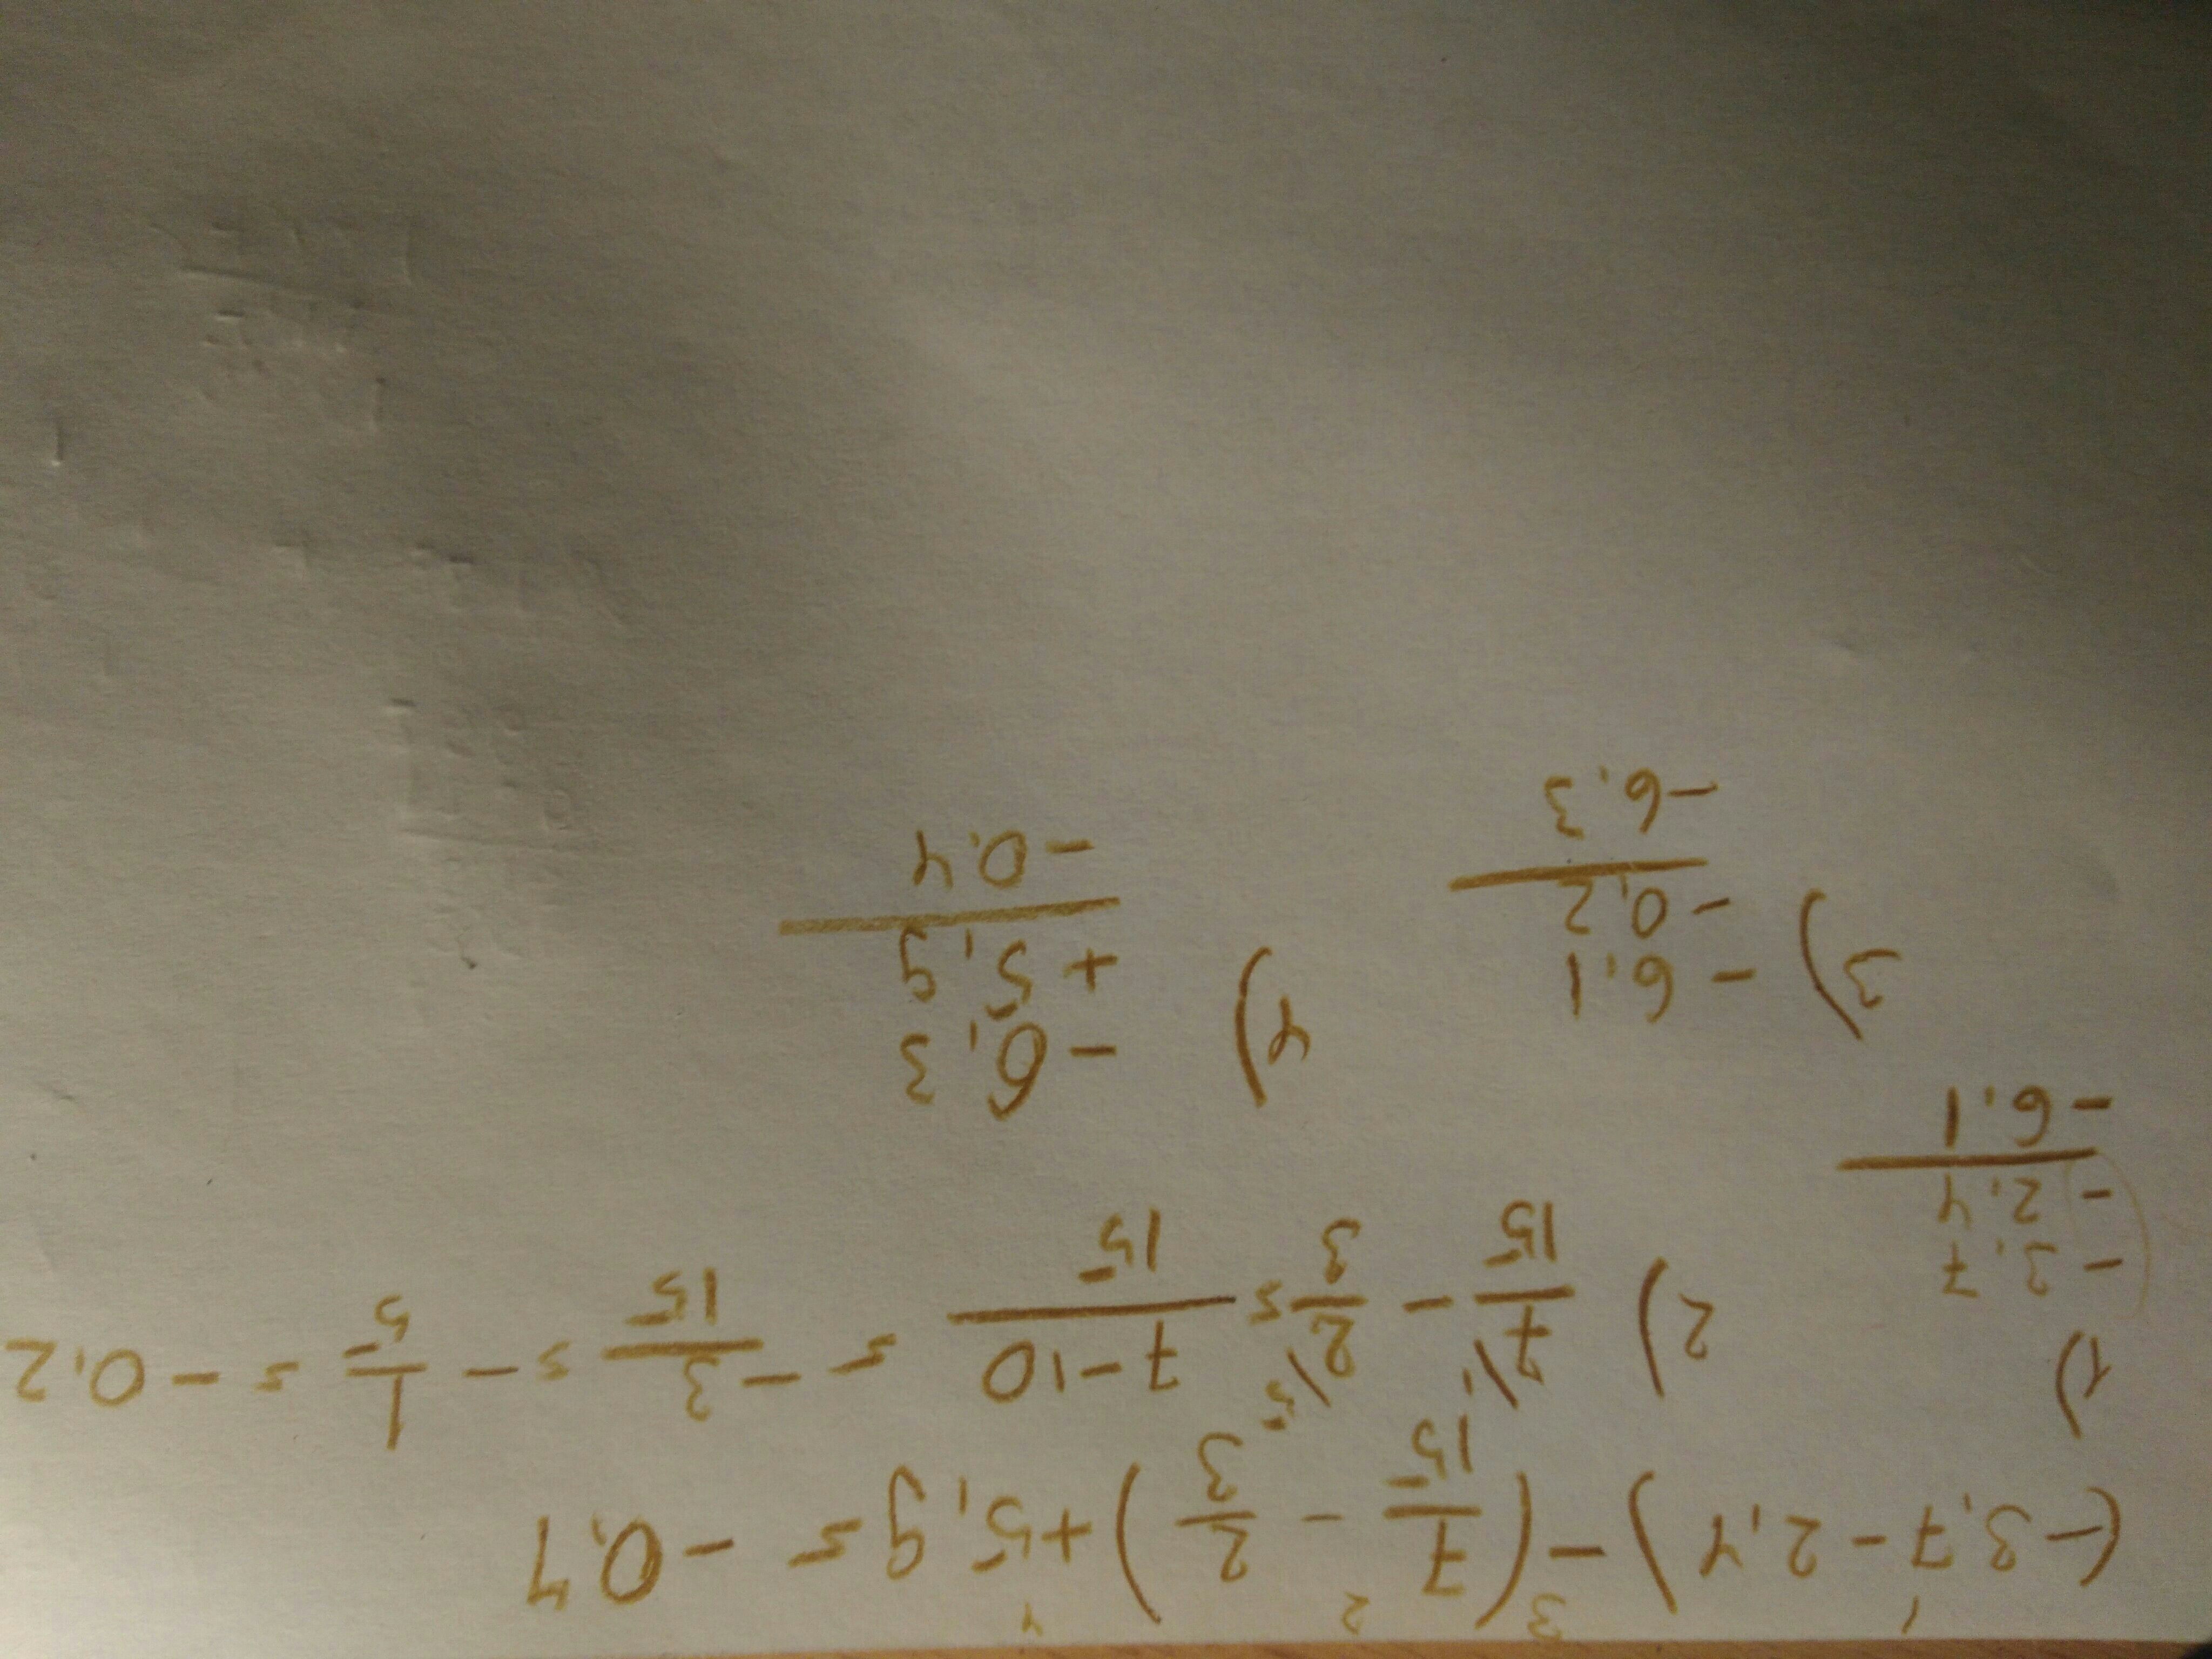 1 3 2 4
(-3,7 - 2,4) - (7/15 - 2/3) + 5,9 = -0,4
1) 2) 7\1/15 - 2\5/3 = 7-10/15 = -3/15 = -1/5 = -0,2
-3,7
-2,4
-6,1
3) -6,1 4) -6,3
-0,2 +5,9
-6,3 -0,4